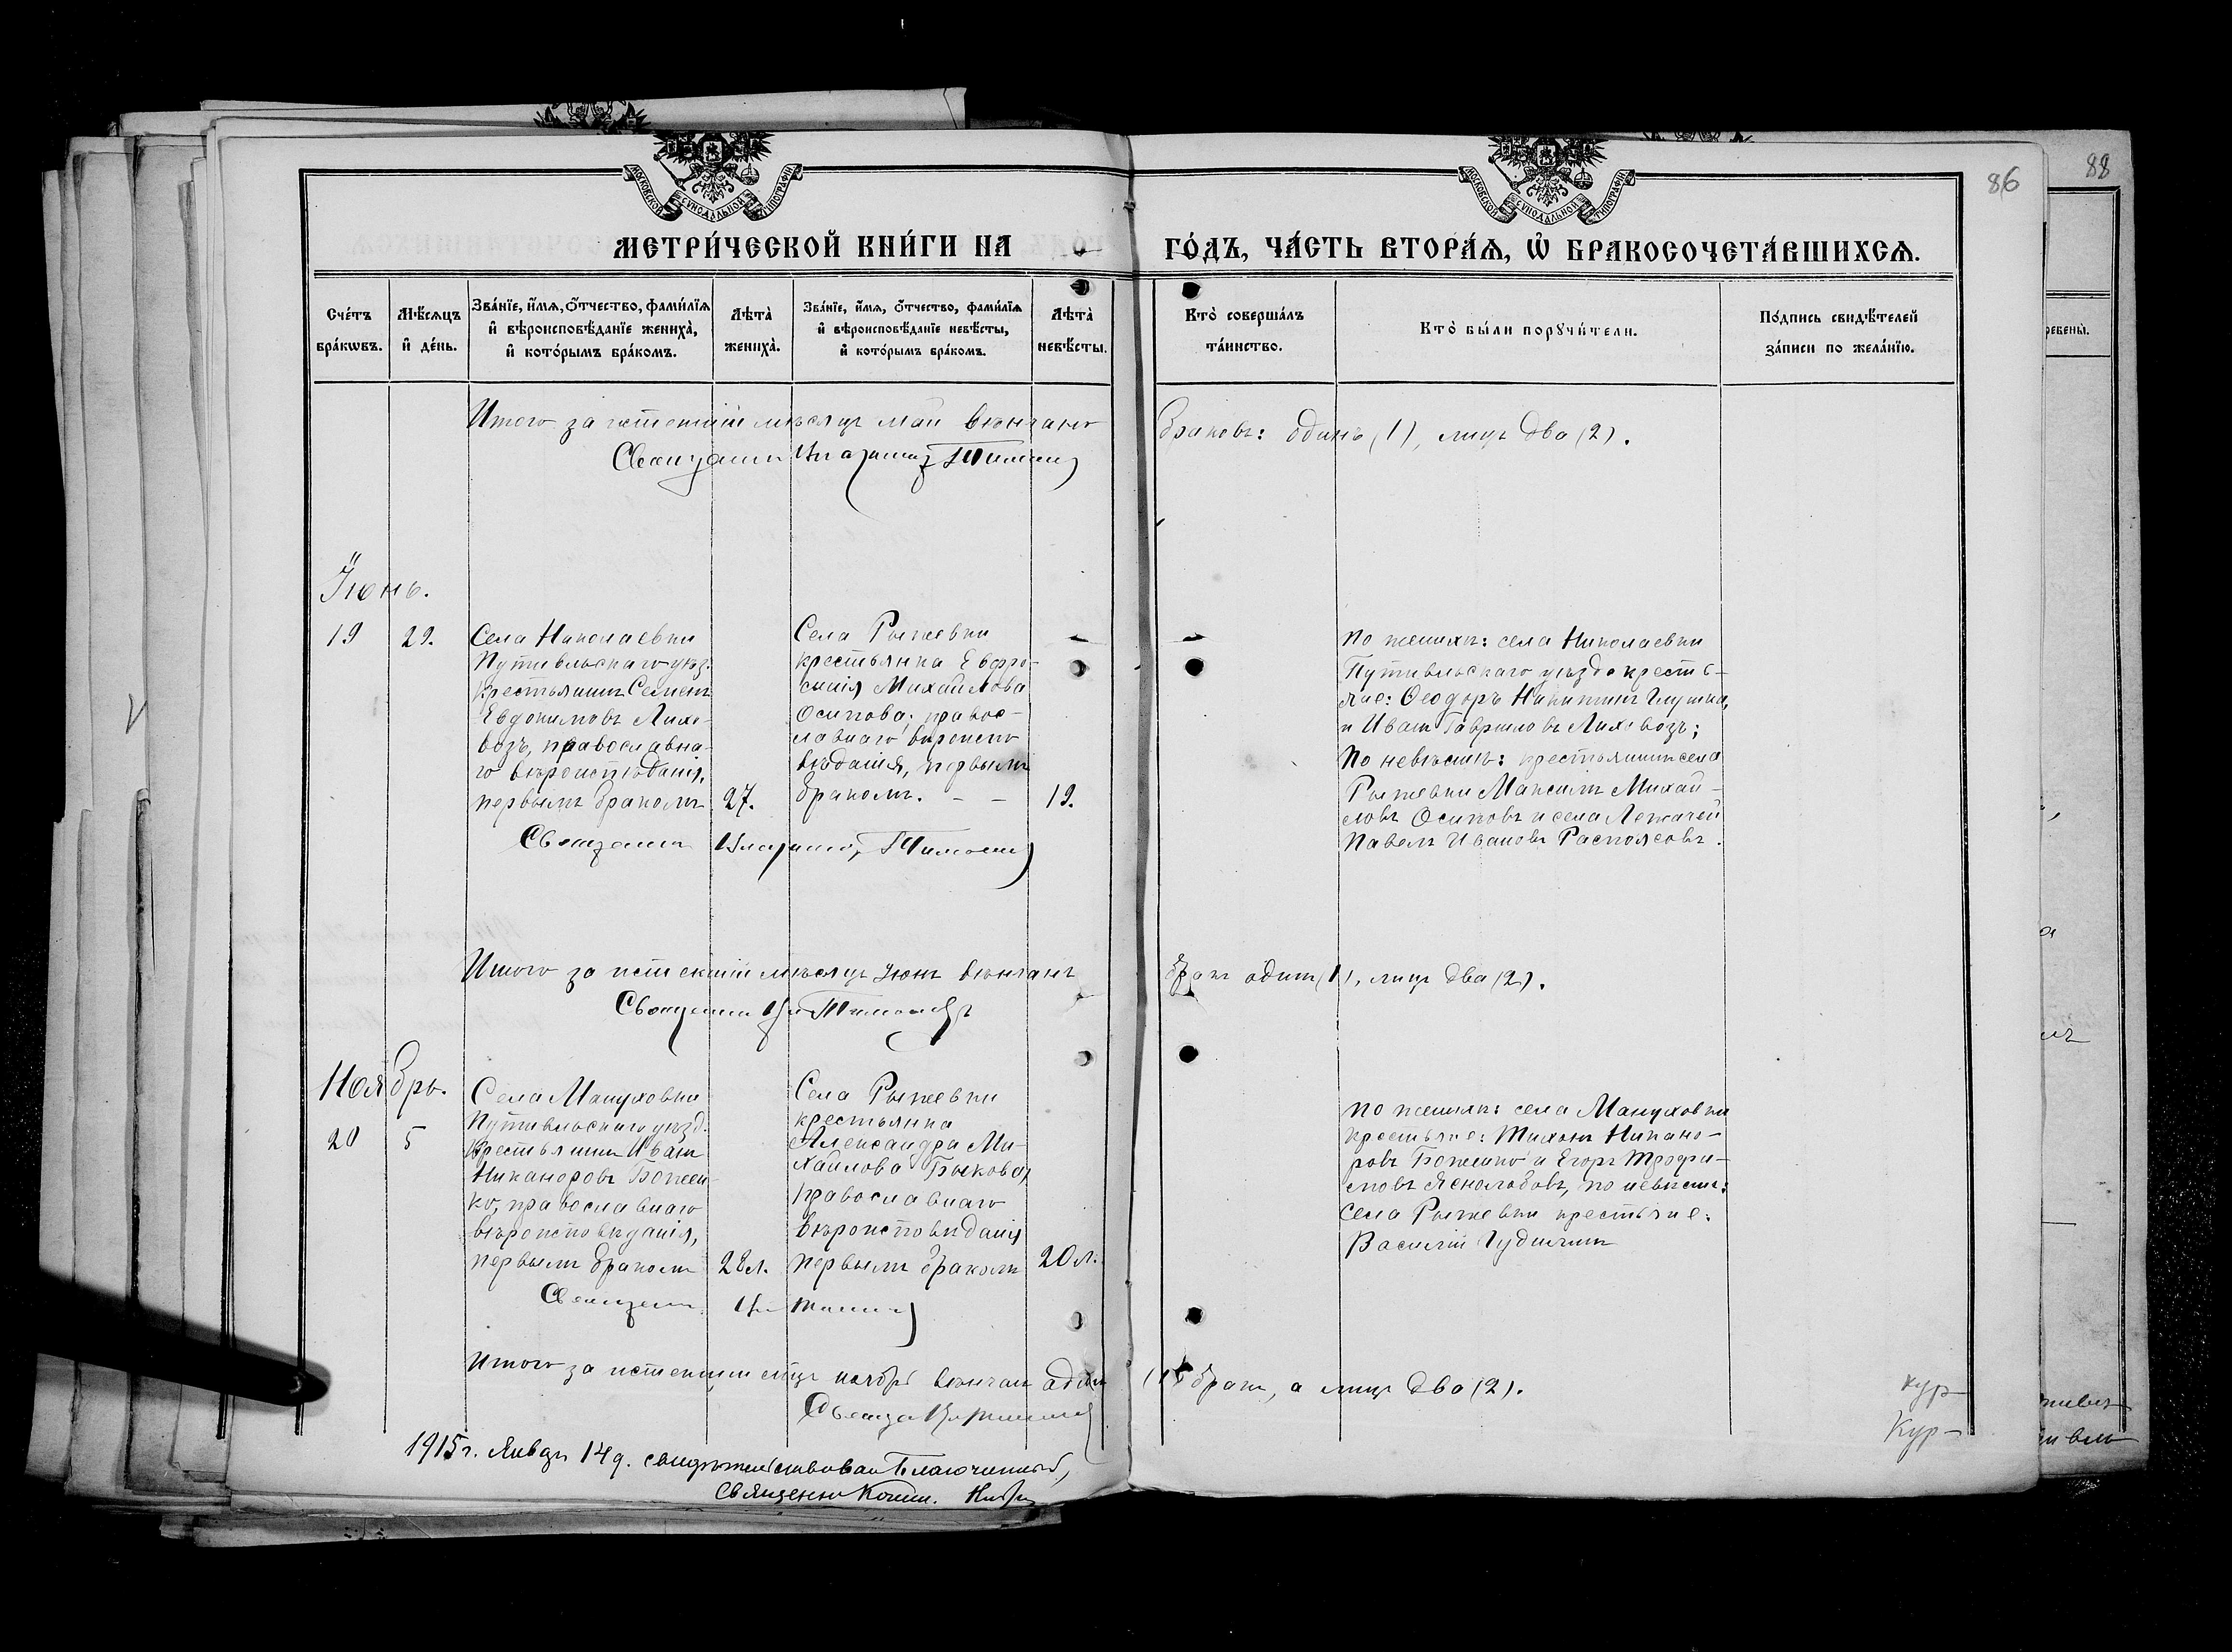 86
88
МОСКОВСКОЙ СѴНОДАЛЬНОЙ ТИПОГРАФІИ
МОСКОВСКОЙ СѴНОДАЛЬНОЙ ТИПОГРАФІИ
МЕТРИ́ЧЕСКОЙ КНИ́ГИ НА
ГО́ДЪ, ЧА́СТЬ ВТОРА́Ѧ, Ѽ БРАКОСОЧЕТА́ВШИХСѦ.
Сче́тъ
бра́кѡвъ.
Мѣ́сяцъ
и҆ де́нь.
Зва́нїе, и҆́мя, ѻ҆́тчество, фами́лїя
и҆ вѣроисповѣ́данїе жениха̀,
и҆ кото́рымъ бра́комъ.
Лѣ́та̀
жениха̀.
Зва́нїе, и҆́мя, ѻ҆́тчество, фами́лїя
и҆ вѣроисповѣ́данїе невѣ́сты,
и҆ кото́рымъ бра́комъ.
Лѣ́та̀
невѣ́сты.
Кто̀ соверша́лъ
та́инство.
Кто̀ бы́ли порꙋчи́тели.
По́дпись свидѣ́телей
за́писи по жела́нїю.
ребены.
Итого за истекшій мѣсяцъ май вѣнчано
браковъ: одинъ (1), лицъ два (2).
Священникъ Тимоѳ
Іюнь.
19
29.
Села Николаевки
Путивльскаго уѣз.
крестьянинъ Семенъ
Евдокимовъ Лихо-
возъ, православна-
го вѣроисповѣданія,
первымъ бракомъ
27.
Села Рыжевки
крестьянка Евфро-
синія Михайлова
Осипова, правос-
лавнаго вѣроиспо
вѣданія, первымъ
бракомъ. — —
19.
По женихѣ: села Николаевки
Путивльскаго уѣзда кресть-
яне: Ѳеодоръ Никитинъ Глушко,
и Иванъ Гавриловъ Лиховозъ;
По невѣстѣ: крестьянинъ села
Рыжевки Максимъ Михай-
ловъ Осиповъ и села Лежачей
Павелъ Ивановъ Распоясовъ.
Священникъ
Итого за истекшій мѣсяцъ Іюнь вѣнчанъ
бракъ одинъ (1), лицъ два (2).
Священникъ
Ноябрь.
20
5
Села Мануховки
Путивльскаго уѣзд.
Крестьянинъ Иванъ
Никаноровъ Божен-
ко, православнаго
вѣроисповѣданія,
первымъ бракомъ
28 л.
Села Рыжевки
крестьянка
Александра Ми-
хайлова Быкова,
православнаго
вѣроисповѣданія
первымъ бракомъ
20 л.
По женихѣ: села Мануховки
крестьяне: Тихонъ Никано-
ровъ Боженко и Егоръ Трофи-
мовъ по невѣстѣ:
Села Рыжевки крестьяне:
Василій
Священ.
Итого за истекшій мѣсяцъ ноябрь вѣнчанъ одинъ
(1) бракъ, а лицъ два (2).
Кур
Кур
1915 г. Январ 14 д. свидѣтельствовалъ Благочинный,
Священно